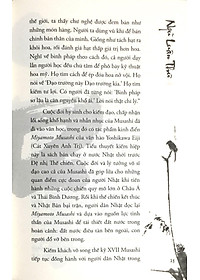 thế giới, ta thấy chư nghệ được đem bán như
những món hàng. Người ta dùng vũ khí để bán
chính bản thân của mình. Giống như tách hạt ta
khỏi hoa, rồi đánh giá hạt thấp giá trị hơn hoa.
Nghề về binh pháp theo cách đó, cả người dạy
lẫn người học đều chú tâm để phô bày kỹ thuật
hoa mỹ. Họ tìm cách để ép đóa hoa nở vội. Họ
nói về 'Đạo trường này Đạo trường kia.' Họ tìm
kiếm lợi lộc. Có ai đó từng nói: 'Binh pháp
sơ lậu là căn nguyên khổ ải.' Lời nói thật chí lý."
Cuộc đời hy sinh cho kiếm đạo, chấp nhận
lối sống khổ hạnh và nhẫn nhục của Musashi đã
đi vào văn học, trong đó có tác phẩm kinh điển
Miyamoto Musashi của văn hào Yoshikawa Eiji
(Cát Xuyên Anh Trị). Tiểu thuyết kiếm hiệp
này ra sách bán chạy ở nước Nhật trước
Đệ Nhị Thế chiến. Cuộc đời và lý tưởng cao
cả của Musashi đã giúp lấp liếm cho những
quan điểm cực đoan của người Nhật khi tiến hành
những cuộc chiến quy mô lớn ở Châu Á
và Thái Bình Dương. Rồi khi thế chiến kết thúc
và Nhật Bản bại trận, người dân Nhật đọc lại
Miyamoto Musashi và dựa vào nguồn lực tinh
thần của Musashi để tái thiết đất nước trong
hoàn cảnh: đất nước điêu tàn và kiệt quệ, con
người đổ vỡ bên trong.
Kiếm khách vô song thế kỷ XVII Musashi
tiếp tục đồng hành với người dân Nhật trong
Ngũ Luân Thư
15